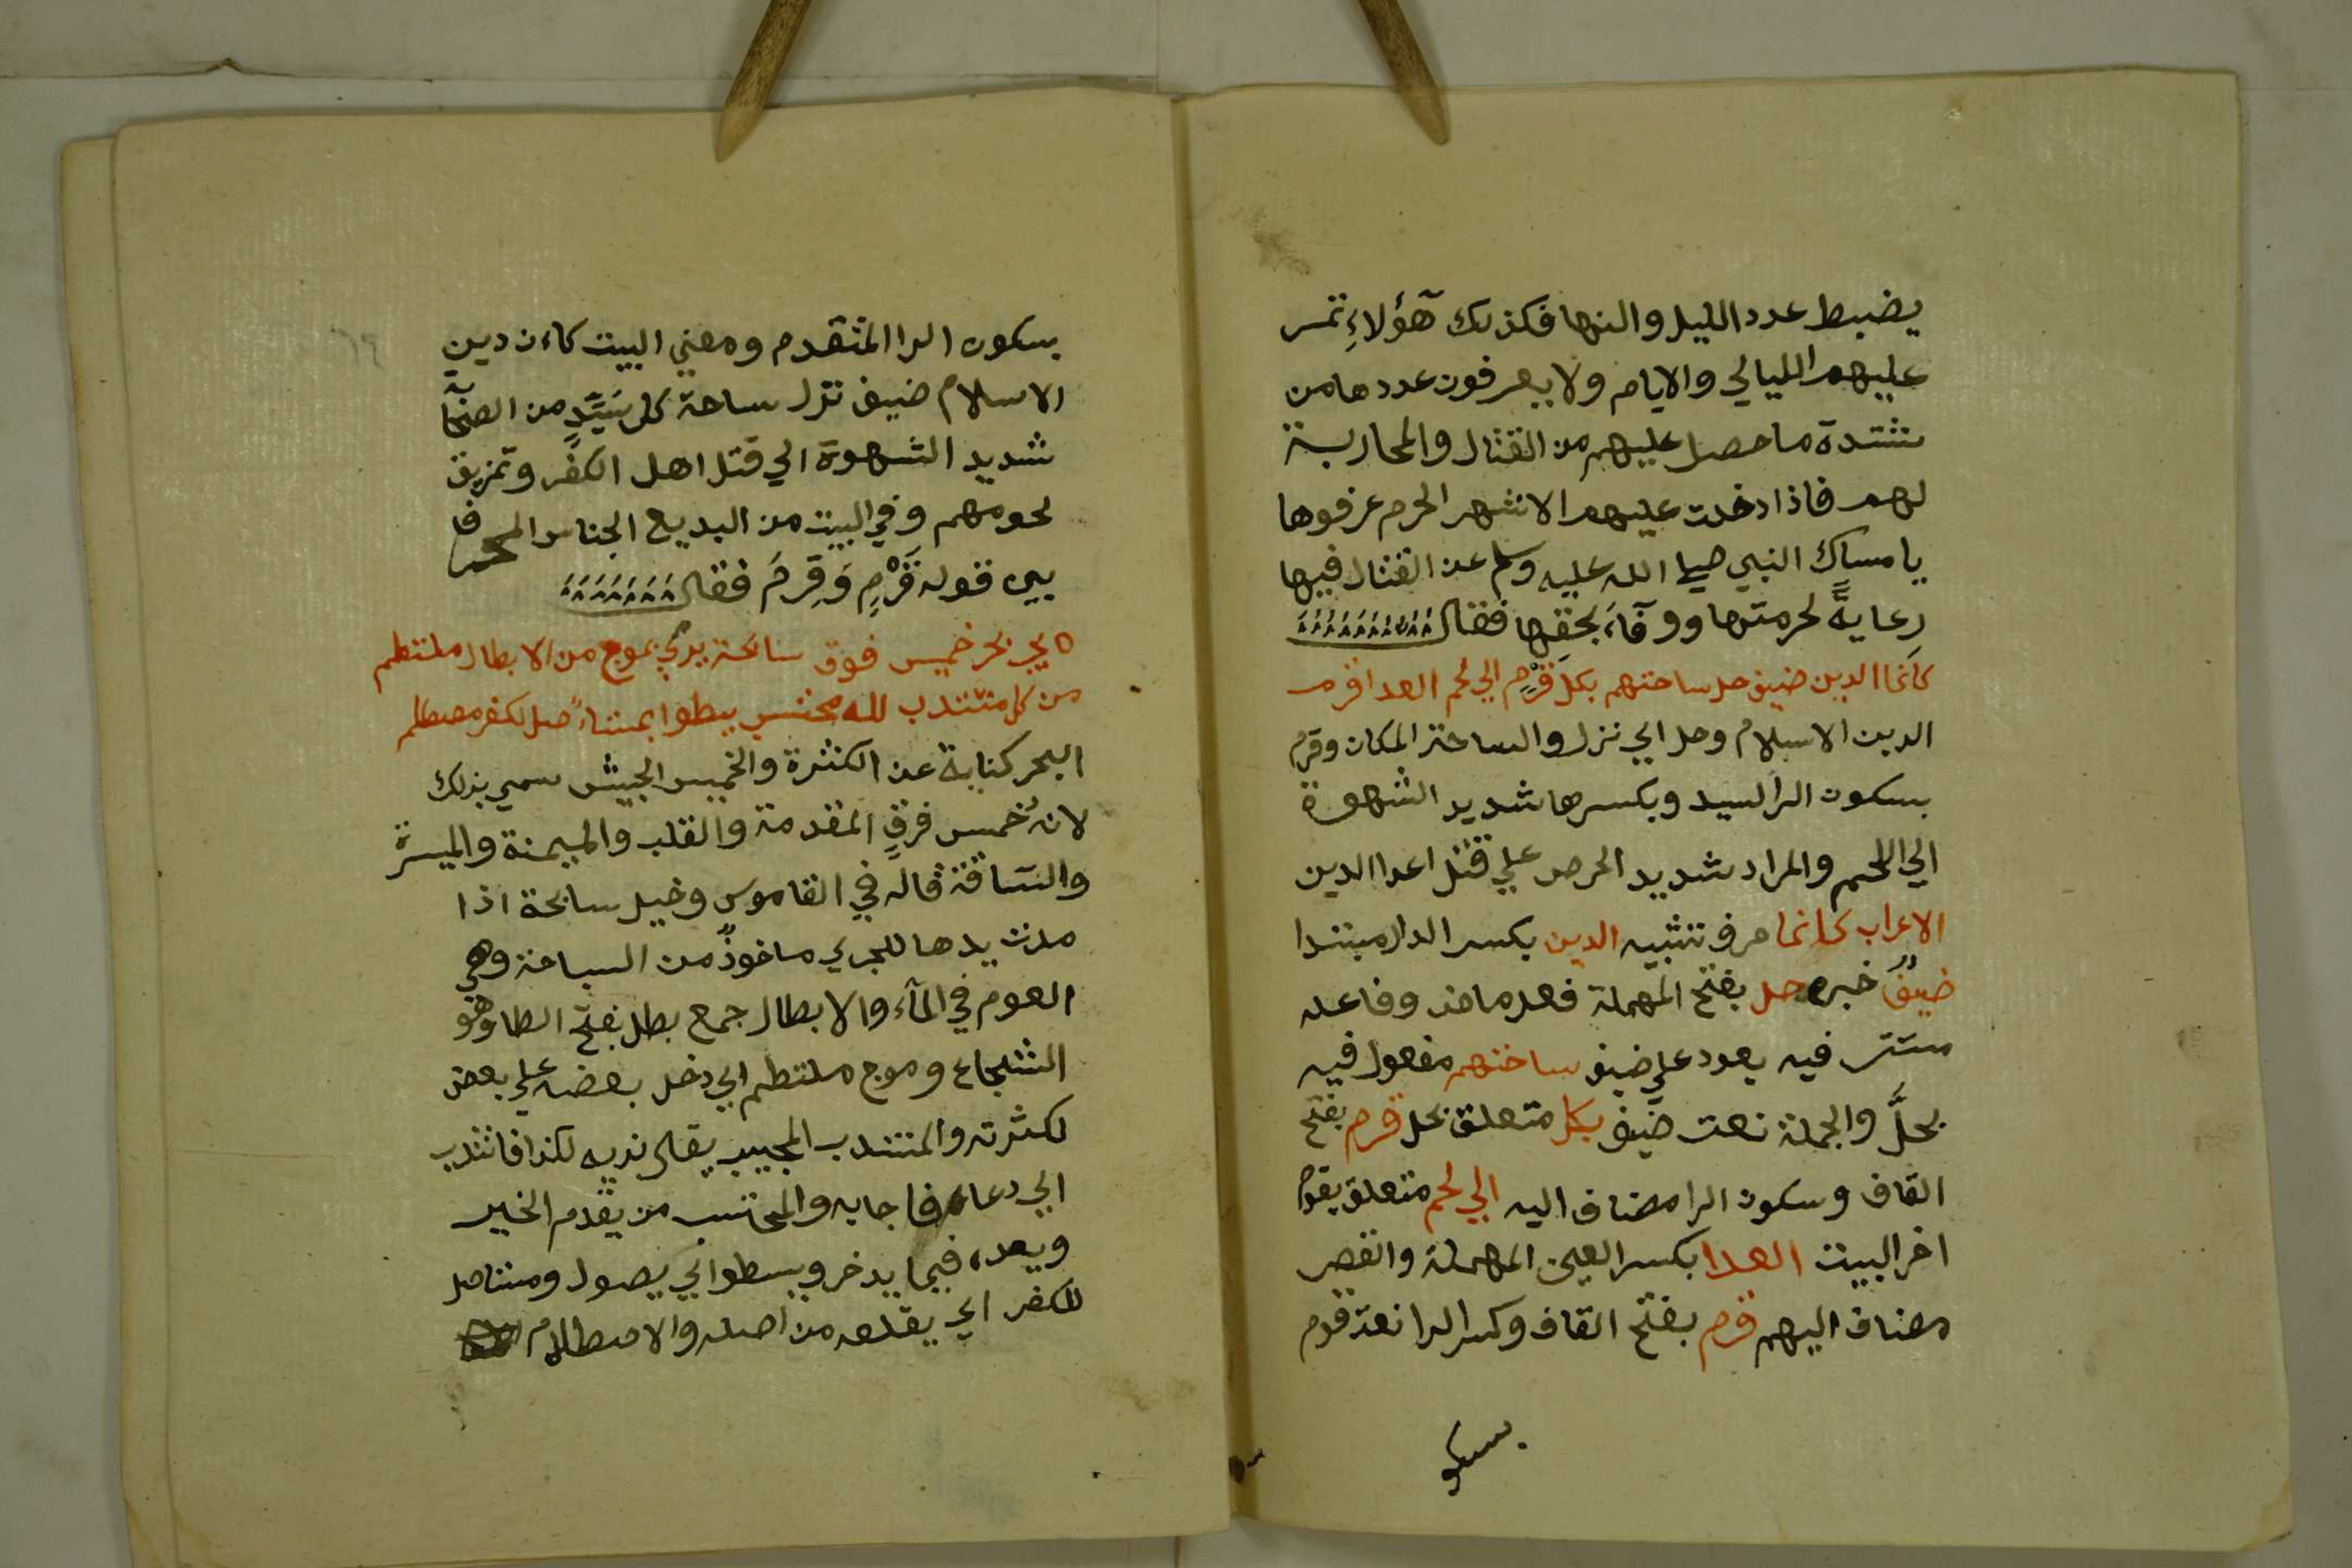 يضبط عدد الليل والنها فكذلك هؤلاءِ تمر
عليهم الليالي والايام ولا يعرفون عددها من
شدة ما حصل عليهم من القتال والمحاربة
لهم فاذا دخلت عليهم الاشهر الحرم عرفوها
يامساك النبي صلي الله عليه وسلم عن القتال فيها
رعايةً لحرمتها ووفآء بحقها فقال
كانما الدين ضيف حل ساحتهم بكل قَرْمٍ الي لحم العدا قرم
الدين الاسلام وحل اي نزل والساحة المكان وقرم
بسكون الرا السيد وبكسرها شديد الشهوة
الي اللحم والمراد شديد الحرص علي قتل اعدا الدين
الاعراب كانما حرف تشبيه الدين بكسر الدال مبتدا
ضيفٌ خبره حل بفتح المهملة فعل ماض وفاعله
مستتر فيه يعود علي ضيف ساحتهم مفعول فيه
بحلَّ والجملة نعت ضيف بكل متعلق بحل قرم بفتح
القاف وسكون الرا مضاف اليه الي لحم متعلق بقرم
اخر البيت العدا بكسر العين المهملة والقصر
مضاف اليهم قرم بفتح القاف وكسر الرا نعت قرم
بسكو
بسكون الرا المتقدم ومعني البيت كاءن دين
الاسلام ضيف نزل ساحة كل سَيّدٍ من الصحآ
شديد الشهوة الي قتل اهل الكفر وتمزيق
لحومهم وفي البيت من البديع الجناس المحرف
بين قوله قَرْمٍ وَقَرِمَ فقال
يجر بحر خميس فوق سابحة يرمي بموج من الابطال ملتطم
من كل منتدب لله محتسب يسطوا بمستاءصل لكفر مصطلم
البحر كناية عن الكثرة والخميس الجيش سمي بذلك
لانه خمس فرقٍ المقدمة والقلب والميمنة والميسرة
والسَّاقة قاله في القاموس وخيل سابحة اذا
مدت يدها للجري ماخوذٌ من السباحة وهي
العوم في المآء والابطال جمع بطل بفتح الطا وهو
الشجاع وموج ملتطم اي دخل بعضه علي بعض
لكثرته والمنتدب المجيب يقال ندبه لكذا فانتدب
اي دعاه فاجابه والمحتسب من يقدم الخير
ويعده فيما يدخر ويسطوا اي يصول ومستاصل
للكفر اي يقلعه من اصله والاصطلام